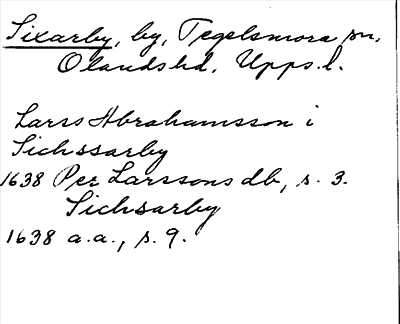 Sixarby, by, Tegelsmora sn,
Olands hd, Upps.l.
Lars Abrahamsson i
Sichssarby
1638 Per Larssons db, s. 3.
Sichsarby
1638 a.a., s. 9.